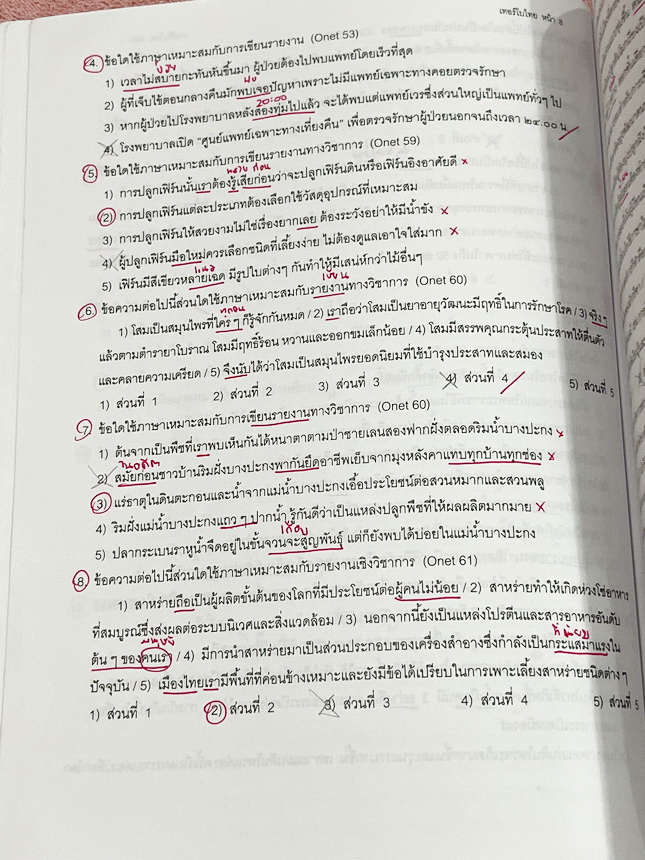 เทอร์โบไทย หน้า 8
4. ข้อใดใช้ภาษาเหมาะสมกับการเขียนรายงาน (Onet 53)
ป่วย
1) เวลาไม่สบายกะทันหันขึ้นมา ผู้ป่วยต้องไปพบแพทย์โดยเร็วที่สุด
พบ
2) ผู้ที่เจ็บไข้ตอนกลางคืนมักพบเจอปัญหาเพราะไม่มีแพทย์เฉพาะทางคอยตรวจรักษา
20:00
3) หากผู้ป่วยไปโรงพยาบาลหลังสองทุ่มไปแล้ว จะได้พบแต่แพทย์เวรซึ่งส่วนใหญ่เป็นแพทย์ทั่วๆ ไป
4) โรงพยาบาลเปิด “ศูนย์แพทย์เฉพาะทางเที่ยงคืน” เพื่อตรวจรักษาผู้ป่วยนอกจนถึงเวลา ๒๔.๐๐ น.
5. ข้อใดใช้ภาษาเหมาะสมกับการเขียนรายงานทางวิชาการ (Onet 59)
1) การปลูกเฟิร์นนั้นเราต้องรู้เสียก่อนว่าจะปลูกเฟิร์นดินหรือเฟิร์นอิงอาศัยดี x
2) การปลูกเฟิร์นแต่ละประเภทต้องเลือกใช้วัสดุอุปกรณ์ที่เหมาะสม
3) การปลูกเฟิร์นให้สวยงามไม่ใช่เรื่องยากเลย ต้องระวังอย่าให้มีน้ำขัง x
4) ผู้ปลูกเฟิร์นมือใหม่ควรเลือกชนิดที่เลี้ยงง่าย ไม่ต้องดูแลเอาใจใส่มาก x
5) เฟิร์นมีสีเขียวหลายเฉด มีรูปใบต่างๆ กันทำให้มีเสน่ห์กว่าไม้อื่นๆ
เขียน
6. ข้อความต่อไปนี้ส่วนใดใช้ภาษาเหมาะสมกับรายงานทางวิชาการ (Onet 60)
ทุกคน
1) โสมเป็นสมุนไพรที่ใคร ๆ ก็รู้จักกันหมด / 2) เราถือว่าโสมเป็นยาอายุวัฒนะมีฤทธิ์ในการรักษาโรค / 3) จริงๆ
แล้วตามตำรายาโบราณ โสมมีฤทธิ์ร้อน หวานและออกขมเล็กน้อย / 4) โสมมีสรรพคุณกระตุ้นประสาทให้ตื่นตัว
และคลายความเครียด / 5) จึงนับได้ว่าโสมเป็นสมุนไพรยอดนิยมที่ใช้บำรุงประสาทและสมอง
1) ส่วนที่ 1 2) ส่วนที่ 2 3) ส่วนที่ 3 4) ส่วนที่ 4 5) ส่วนที่ 5
7. ข้อใดใช้ภาษาเหมาะสมกับการเขียนรายงานทางวิชาการ (Onet 60)
1) ต้นจากเป็นพืชที่เราพบเห็นกันได้หนาตาตามป่าชายเลนสองฟากฝั่งตลอดริมน้ำบางปะกง x
ในอดีต
2) สมัยก่อนชาวบ้านริมฝั่งบางปะกงพากันยึดอาชีพเย็บจากมุงหลังคาแทบทุกบ้านทุกช่อง x
3) แร่ธาตุในดินตะกอนและน้ำจากแม่น้ำบางปะกงเอื้อประโยชน์ต่อสวนหมากและสวนพลู
4) ริมฝั่งแม่น้ำบางปะกงแถว ๆ ปากน้ำ รู้กันดีว่าเป็นแหล่งปลูกพืชที่ให้ผลผลิตมากมาย x
เกือบ
5) ปลากระเบนราหูน้ำจืดอยู่ในขั้นจวนจะสูญพันธุ์ แต่ก็ยังพบได้บ่อยในแม่น้ำบางปะกง
8. ข้อความต่อไปนี้ส่วนใดใช้ภาษาเหมาะสมกับรายงานเชิงวิชาการ (Onet 61)
1) สาหร่ายถือเป็นผู้ผลิตขั้นต้นของโลกที่มีประโยชน์ต่อผู้คนไม่น้อย / 2) สาหร่ายทำให้เกิดห่วงโซ่อาหาร
ที่สมบูรณ์ซึ่งส่งผลต่อระบบนิเวศและสิ่งแวดล้อม / 3) นอกจากนี้ยังเป็นแหล่งโปรตีนและสารอาหารอันดับ
ต้น ๆ ของคนเรา / 4) มีการนำสาหร่ายมาเป็นส่วนประกอบของเครื่องสำอางซึ่งกำลังเป็นกระแสมาแรงใน
ปัจจุบัน / 5) เมืองไทยเรามีพื้นที่ที่ค่อนข้างเหมาะและยังมีข้อได้เปรียบในการเพาะเลี้ยงสาหร่ายชนิดต่าง ๆ
1) ส่วนที่ 1 2) ส่วนที่ 2 3) ส่วนที่ 3 4) ส่วนที่ 4 5) ส่วนที่ 5